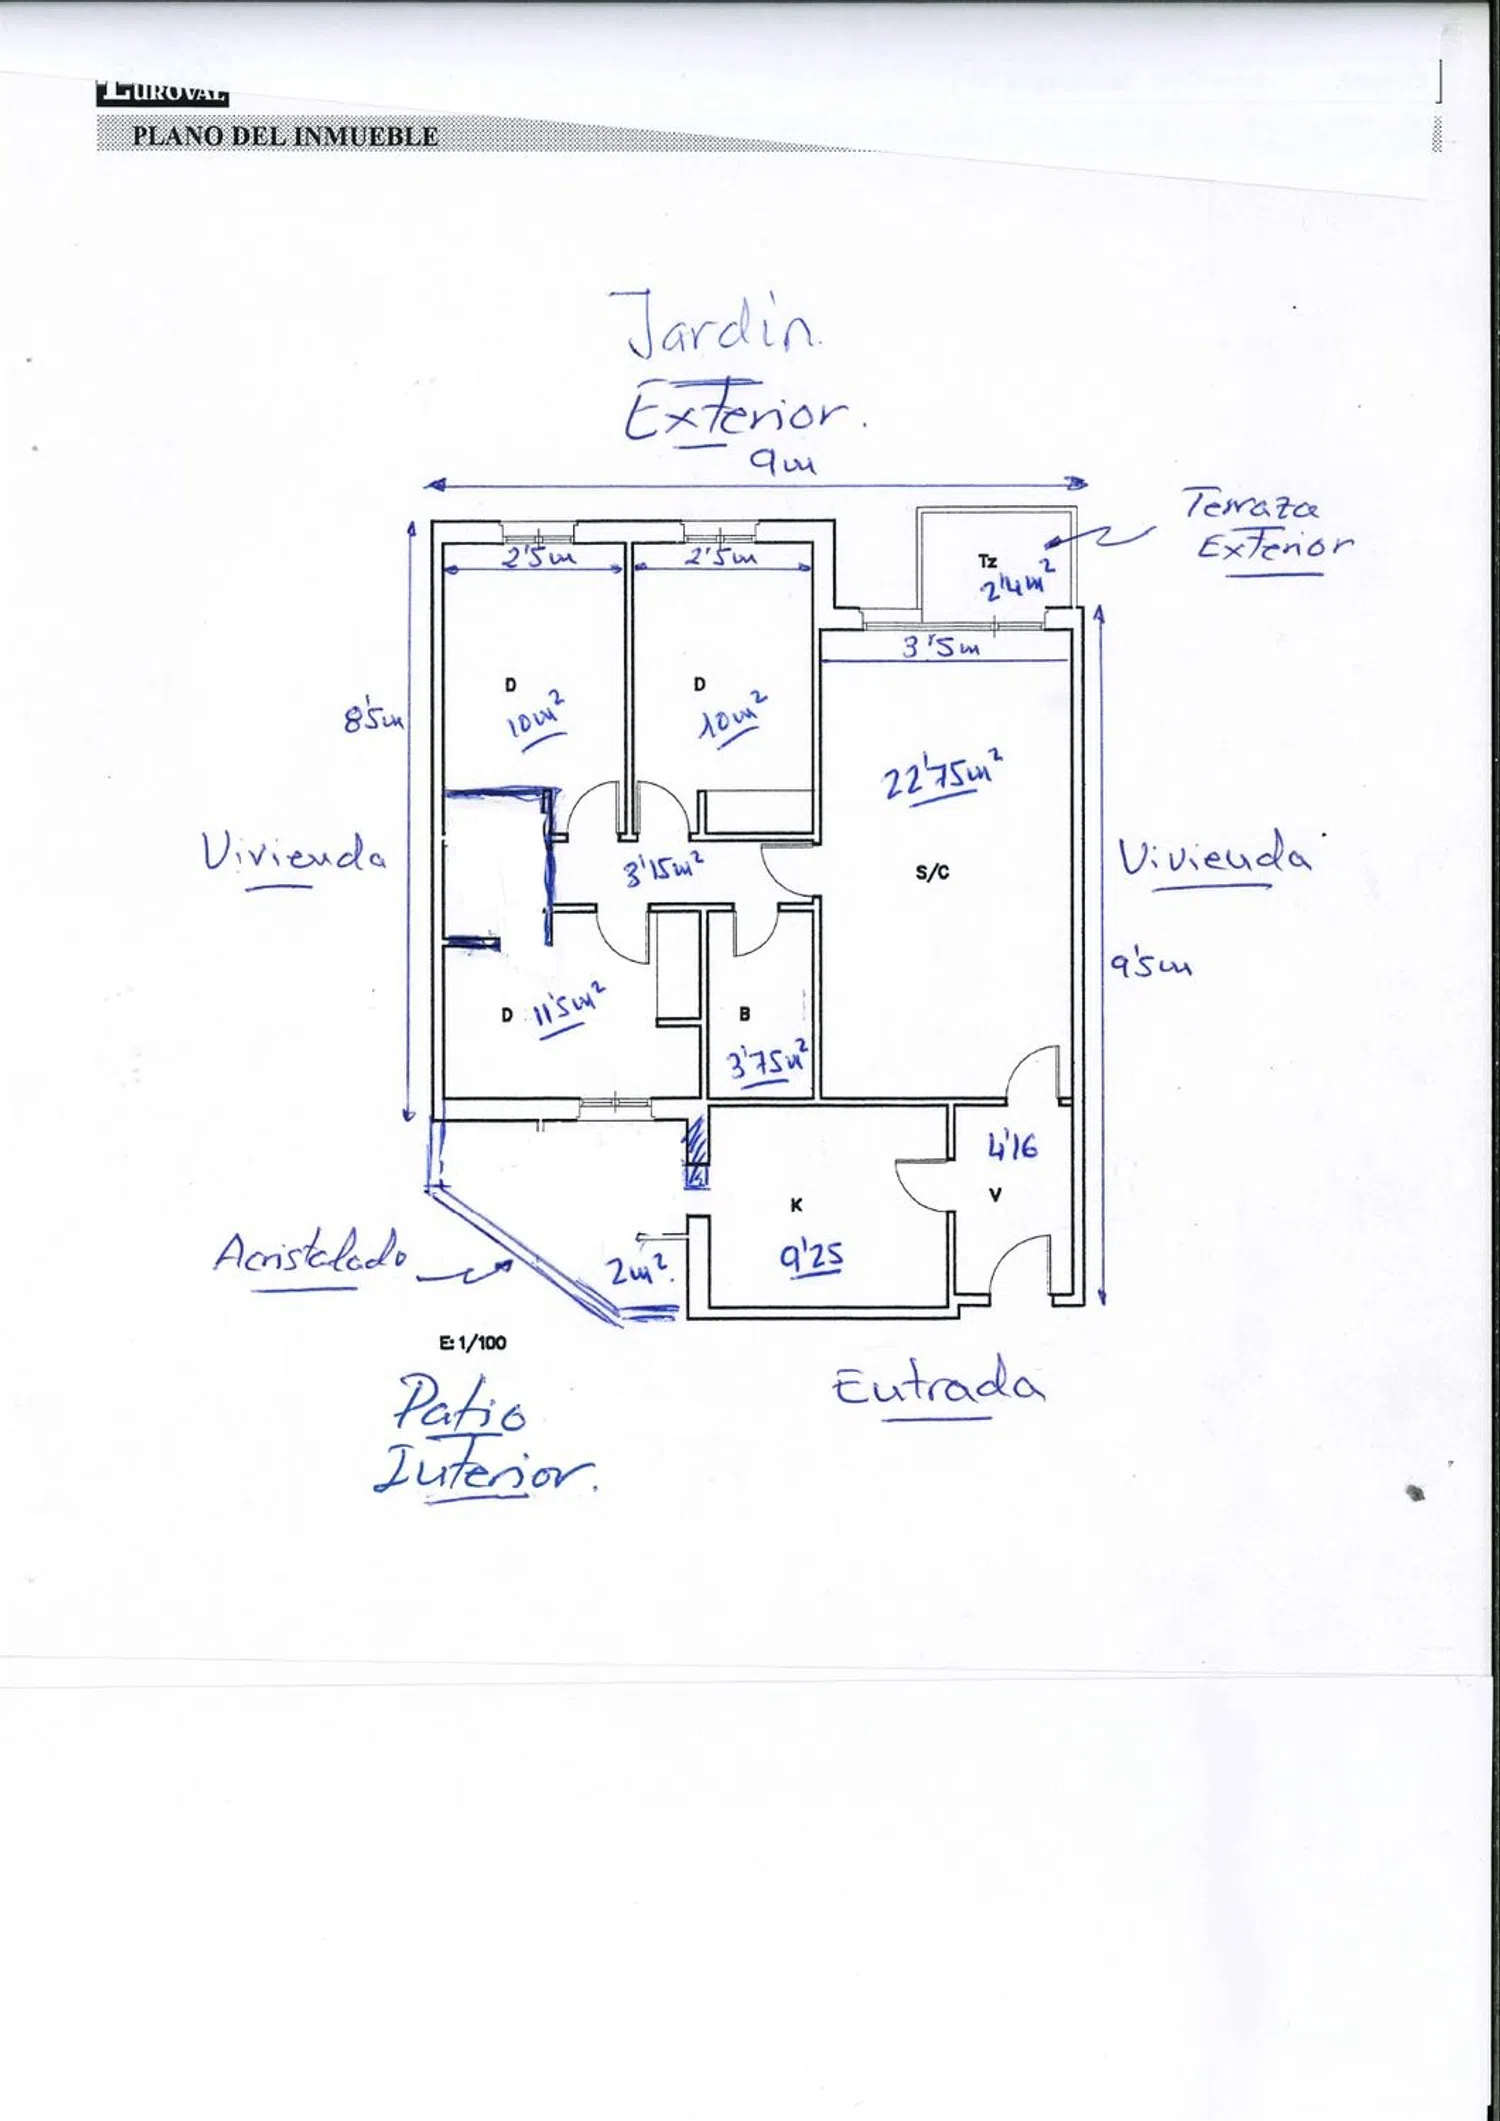 EUROVAL
PLANO DEL INMUEBLE
Jardín.
Exterior.
9m
Terraza
Exterior
Tz
2'4m²
2'5m
2'5m
3'5m
8'5m
D
10m²
D
10m²
22'75m²
Vivienda
3'15m²
S/C
Vivienda
9'5m
D 11'5m²
B
3'75m²
4'16
V
K
9'25
Acristalado
2m².
E:1/100
Patio
Interior.
Entrada